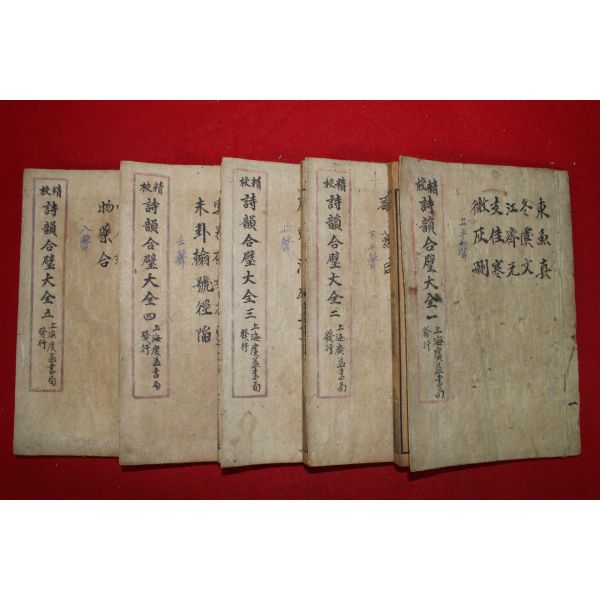 東魚真
冬虞文
江齊元
支佳寒
微灰刪
上平聲
精校
詩韻合璧大全一
上海廣益書局
發行
下平聲
精校
詩韻合璧大全二
上海廣益書局
發行
上聲
精校
詩韻合璧大全三
上海廣益書局
發行
未卦翰號徑陷
去聲
精校
詩韻合璧大全四
上海廣益書局
發行
物藥合
入聲
精校
詩韻合璧大全五
上海廣益書局
發行